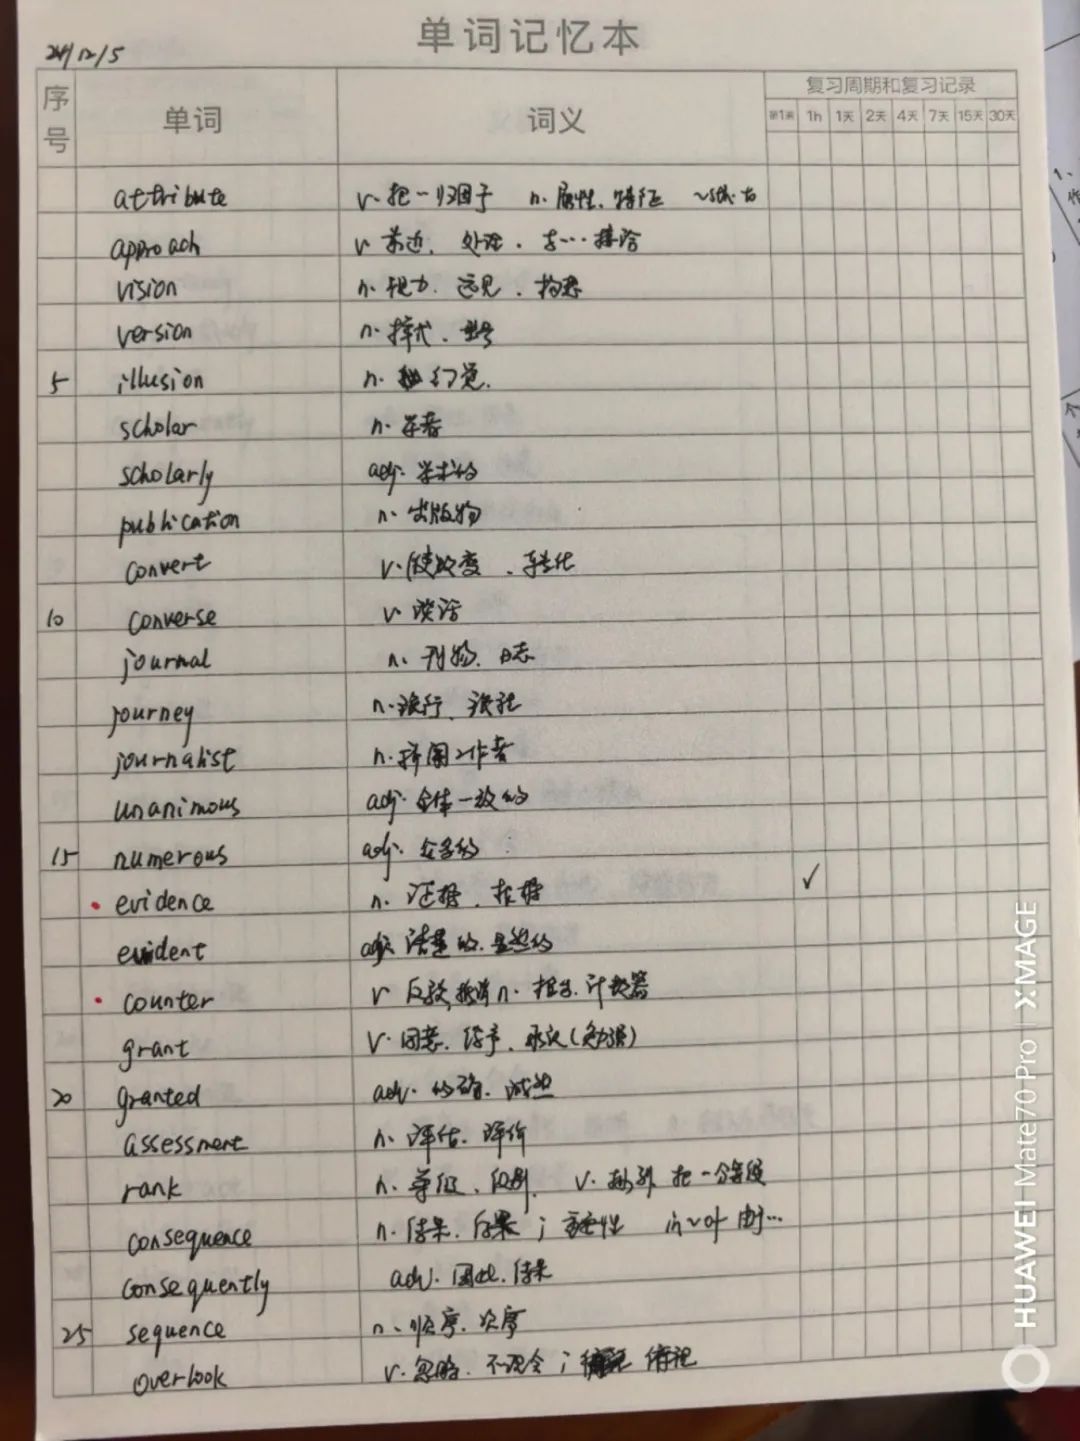 单词记忆本
24/12/5
序号 单词 词义 复习周期和复习记录
第1天 1h 1天 2天 4天 7天 15天 30天
attribute v. 把一归因于 n. 属性、特征 ~sth. to
approach v 靠近、处理、与…接洽
vision n. 视力、远见、构想
version n. 样式、型号
5 illusion n. 幻觉.
scholar n. 学者
scholarly adj. 学术的
publication n. 出版物
convert v. 使改变、转化
10 converse v. 谈话
journal n、刊物、日志
journey n. 旅行、旅程
journalist n. 新闻工作者
unanimous adj. 全体一致的
15 numerous adj. 众多的
evidence n. 证据、根据 ✓
evident adj. 清楚的、显然的
counter v 反驳, 抵消 n. 柜台、计数器
grant v. 同意、给予、承认(勉强)
20 granted adv. 的确、诚然
assessment n、评估、评价
rank n. 等级、级别、 v. 排列 把一分等级
consequence n. 结果、后果；重要性 in~of 由…
consequently adv. 因此、结果
25 sequence n、顺序、次序
overlook v. 忽略、不理会； 俯视
HUAWEI Mate70 Pro | XMAGE